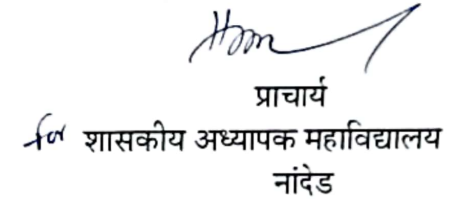 प्राचार्य
for शासकीय अध्यापक महाविद्यालय
नांदेड